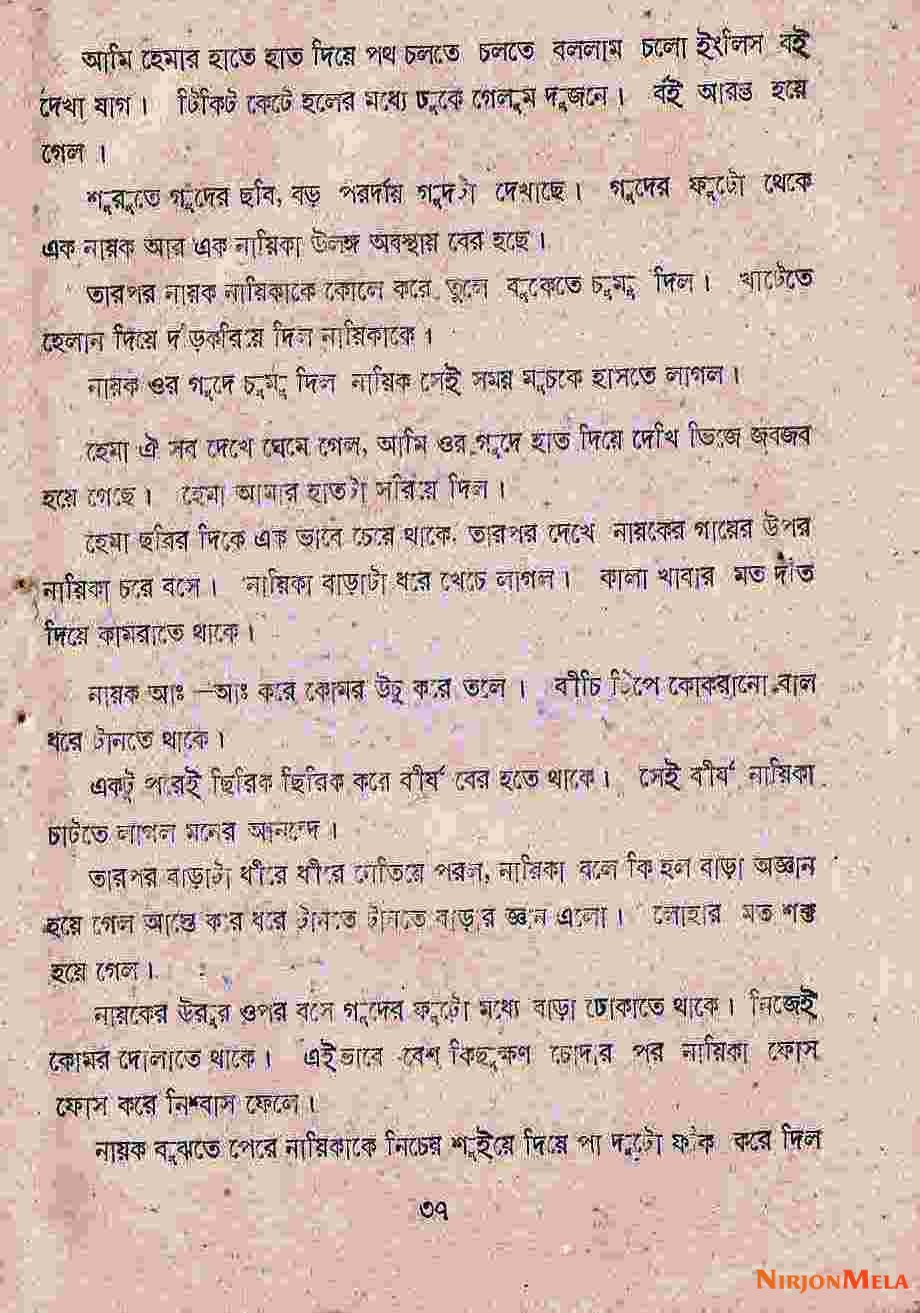 আমি হেমার হাতে হাত দিয়ে পথ চলতে চলতে বললাম চলো ইংলিস বই
দেখা যাগ। টিকিট কেটে হলের মধ্যে ঢুকে গেলুম দুজনে। বই আরম্ভ হয়ে
গেল।
শুরুতে গুদের ছবি, বড় পরদায় গুদটা দেখাছে। গুদের ফুটো থেকে
এক নায়ক আর এক নায়িকা উলঙ্গ অবস্থায় বের হছে।
তারপর নায়ক নায়িকাকে কোলে করে তুলে বুকেতে চুমু দিল। খাটেতে
হেলান দিয়ে দাঁড়করিয়ে দিল নায়িকাকে।
নায়ক ওর গুদে চুমু দিল নায়িক সেই সময় মুচকে হাসতে লাগল।
হেমা ঐ সব দেখে ঘেমে গেল, আমি ওর গুদে হাত দিয়ে দেখি ভিজে জবজব
হয়ে গেছে। হেমা আমার হাতটা সরিয়ে দিল।
হেমা ছবির দিকে এক ভাবে চেয়ে থাকে, তারপর দেখে নায়কের গায়ের উপর
নায়িকা চরে বসে। নায়িকা বাড়াটা ধরে খেচে লাগল। কালা খাবার মত দাঁত
দিয়ে কামরাতে থাকে।
নায়ক আঃ —আঃ করে কোমর উচু করে তলে। বীচি টিপে কোকরানো বাল
ধরে টানতে থাকে।
একটু পরেই ছিরিক ছিরিক করে বীর্য বের হতে থাকে। সেই বীর্য নায়িকা
চাটতে লাগল মনের আনন্দে।
তারপর বাড়াটা ধীরে ধীরে নেতিয়ে পরল, নায়িকা বলে কি হল বাড়া অজ্ঞান
হয়ে গেল আস্তে করে ধরে টানতে টানতে বাড়ার জ্ঞান এলো। লোহার মত শক্ত
হয়ে গেল।
নায়কের উরুর ওপর বসে গুদের ফুটো মধ্যে বাড়া ঢোকাতে থাকে। নিজেই
কোমর দোলাতে থাকে। এইভাবে বেশ কিছুক্ষণ চোদার পর নায়িকা ফোস
ফোস করে নিশ্বাস ফেলে।
নায়ক বুঝতে পেরে নায়িকাকে নিচেয় শুইয়ে দিয়ে পা দুটো ফাঁক করে দিল
৩৭
NIRJONMELA